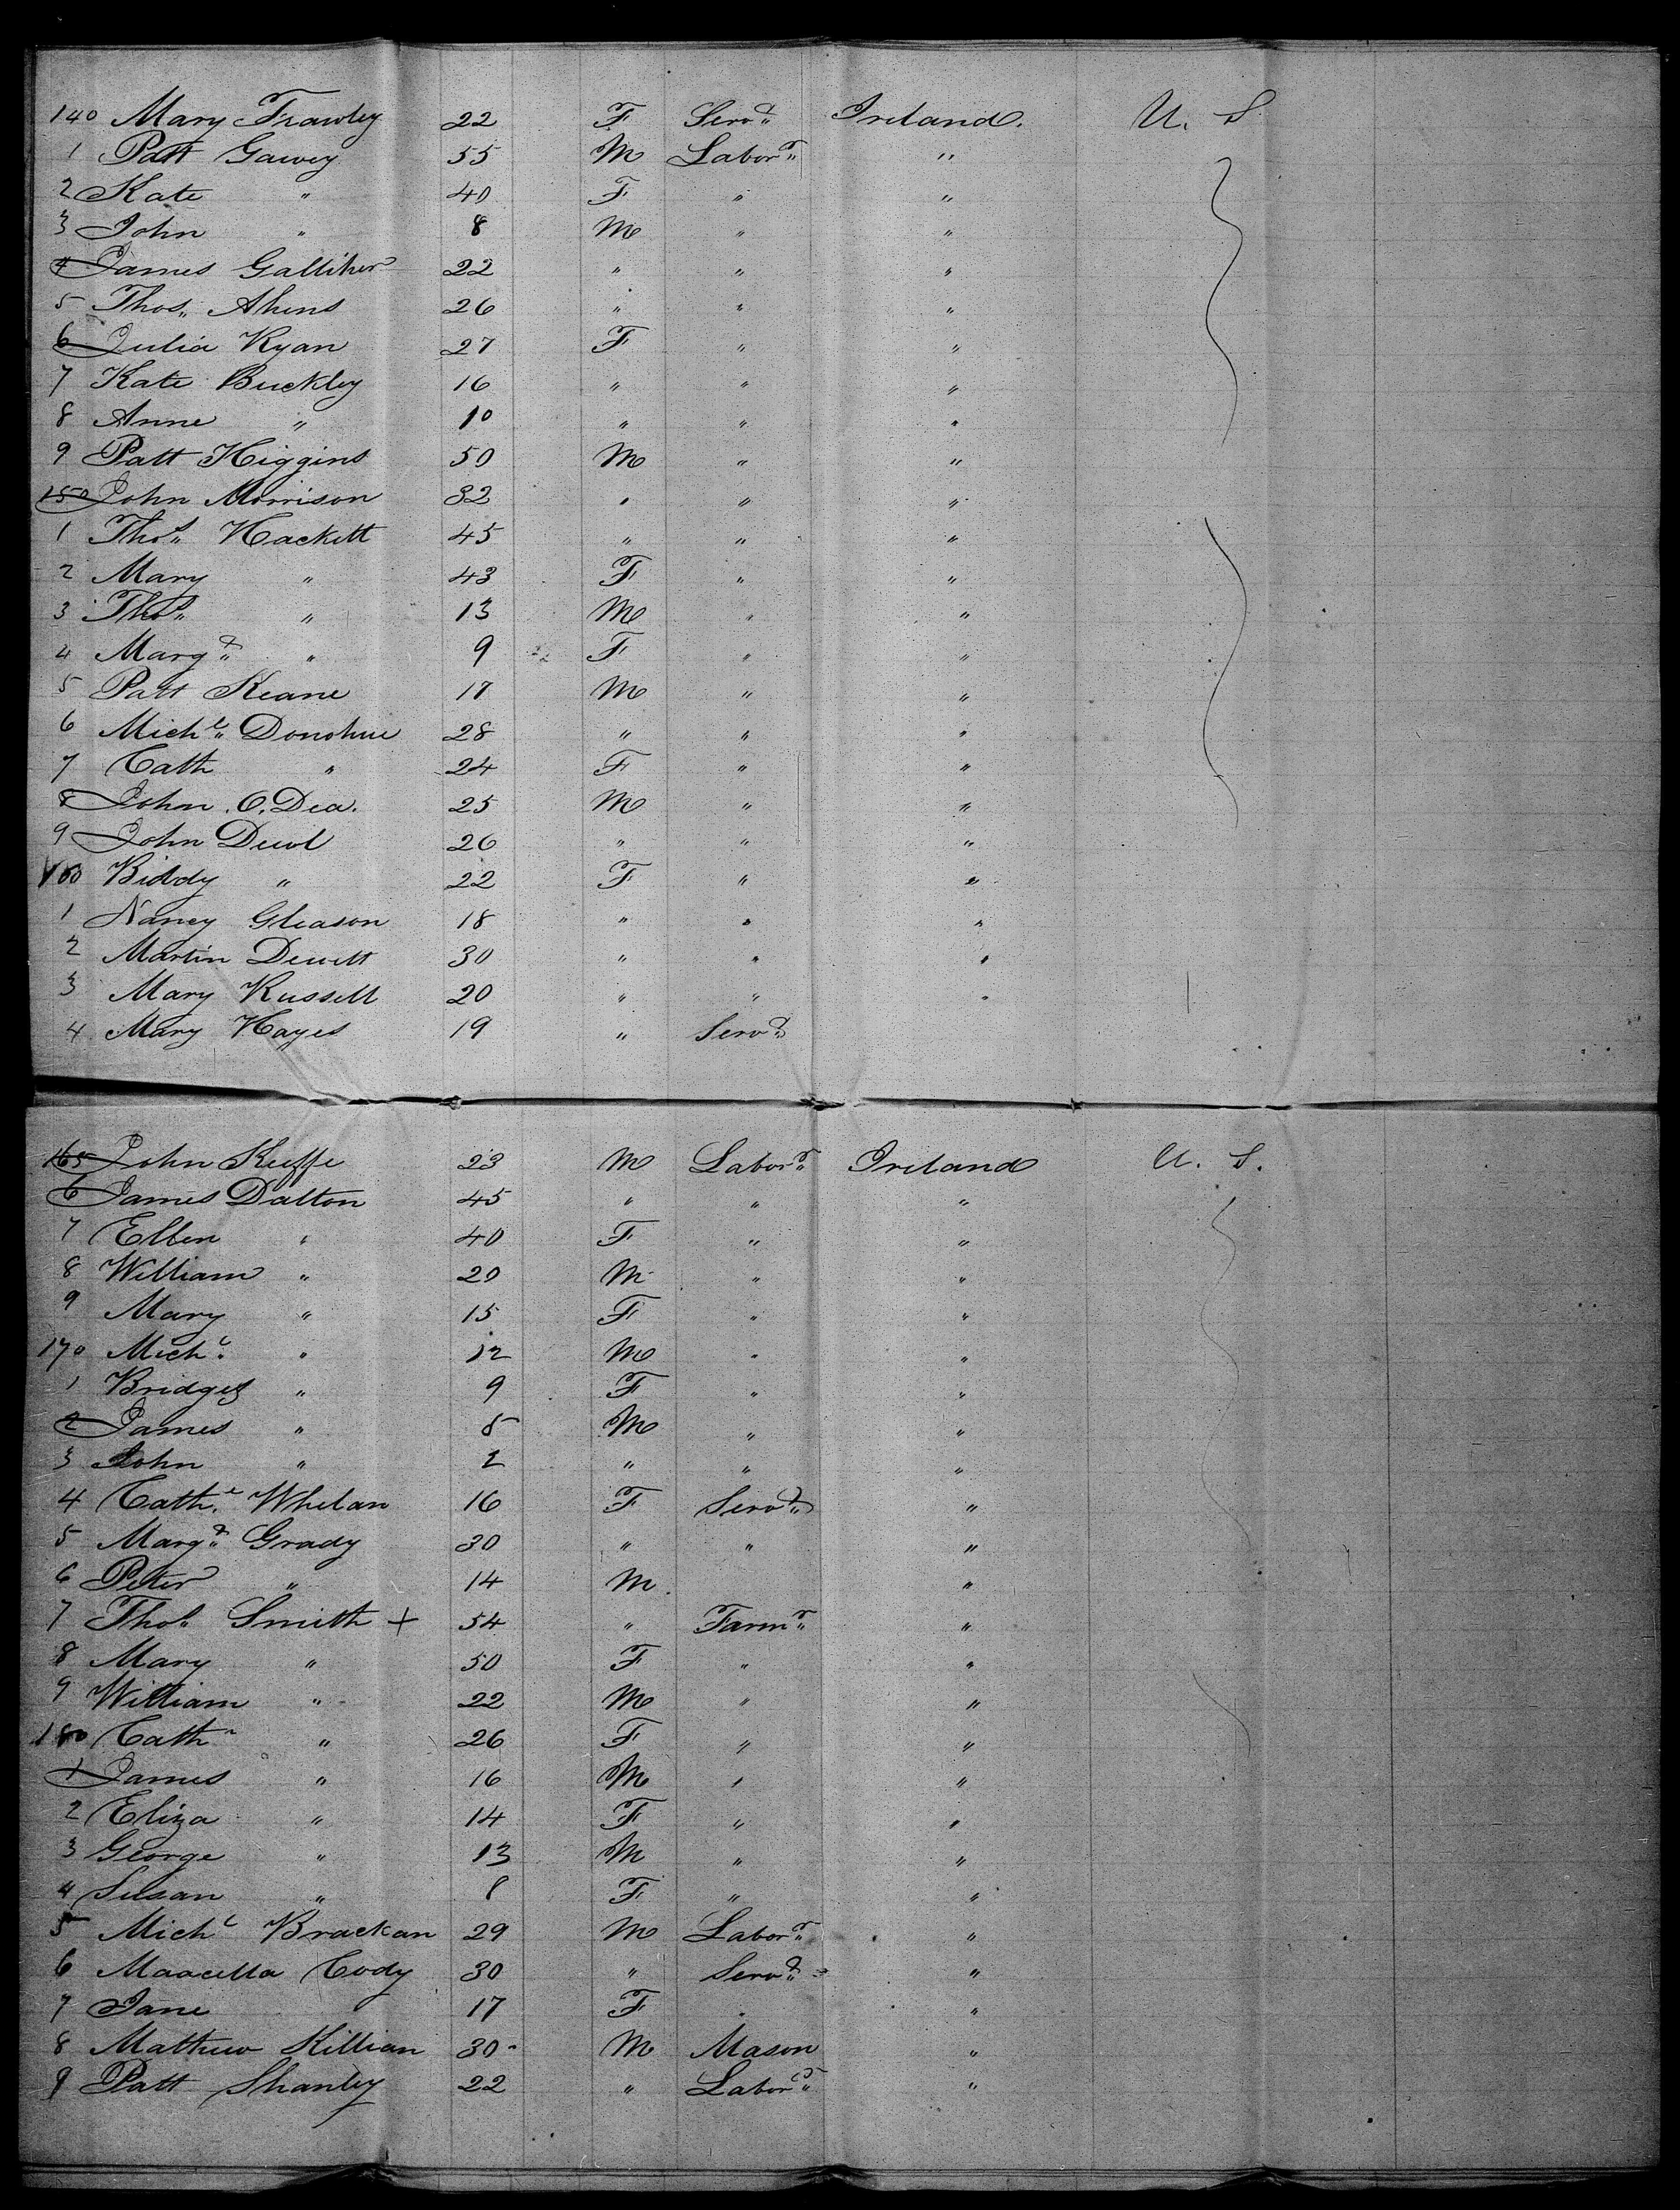 140 Mary Frawley 22 F Servt Ireland. U. S
1 Patt Gavey 55 M Laborr "
2 Kate " 40 F " "
3 John " 8 M " "
4 James Galliher 22 " " "
5 Thos. Ahens 26 " " "
6 Julia Ryan 27 F " "
7 Kate Buckley 16 " " "
8 Anne " 10 " " "
9 Patt Higgins 50 M " "
150 John Morrison 32 " " "
1 Thos Hackett 45 " " "
2 Mary " 43 F " "
3 Thos " 13 M " "
4 Margt " 9 F " "
5 Patt Keane 17 M " "
6 Michl Donohue 28 " " "
7 Cath " 24 F " "
8 John O. Dea. 25 M " "
9 John Dewl 26 " " "
160 Biddy " 22 F " "
1 Nancy Gleason 18 " " "
2 Martin Dewett 30 " " "
3 Mary Russell 20 " " "
4 Mary Hayes 19 " Servt
165 John Keeffe 23 M Laborr Ireland U. S.
6 James Dalton 45 " " "
7 Ellen " 40 F " "
8 William " 20 M " "
9 Mary " 15 F " "
170 Michl " 12 M " "
1 Bridget " 9 F " "
2 James " 5 M " "
3 John " 2 " " "
4 Cathe Whelan 16 F Servt "
5 Margt Grady 30 " " "
6 Peter " 14 M "
7 Thos Smith + 54 " Farmr "
8 Mary " 50 F " "
9 William " 22 M " "
180 Cath " 26 F " "
1 James " 16 M " "
2 Eliza " 14 F " "
3 George " 13 M " "
4 Susan " 8 F " "
5 Michl Brackan 29 M Laborr "
6 Maacella Cody 30 " Servt "
7 Jane 17 F " "
8 Mathew Killian 30 M Mason "
9 Patt Shanley 22 " Laborr "